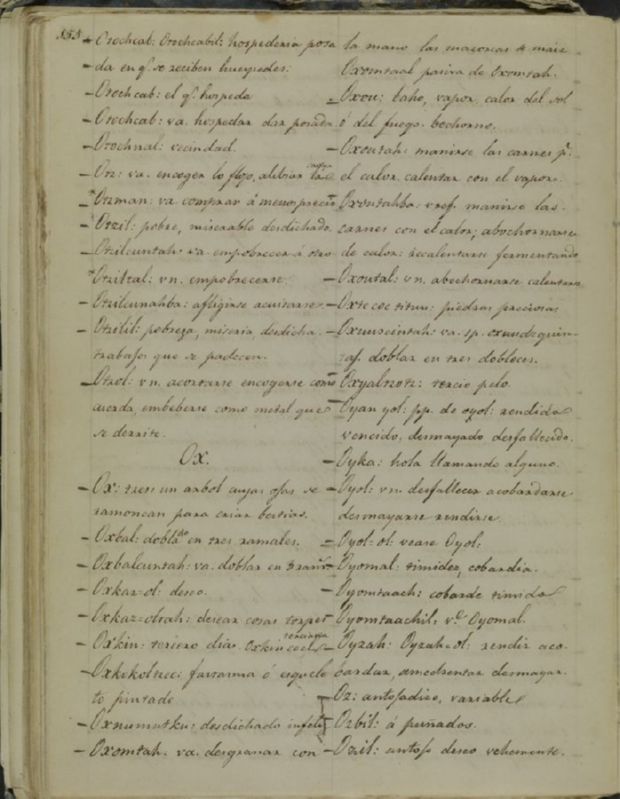 155
– Otochcab: Otochcabil: hospederia posa
da en q.e se reciben huespedes:
– Otochcab: el q.e hospeda
– Otochcab: va. hospedar dar posada
– Otochnal: vecindad.
– Otz: va. encoger lo flojo, alibiar la carga
– Otzman: va comprar á menosprecio
– Otzil: pobre, miserable desdichado.
– Otzilcuntah: va. empobrecer á otro
– Otziltal: vn. empobrecerse
– Otzilcunahba: afligirse acuitarse
– Otzilil: pobreza, miseria, desdicha.
trabajos que se padecen.
– Otzol: vn. acortarse encogerse como
cuerda, embeberse como metal que
se derrite.
Ox.
– Ox: tres: un arbol cuyas ojas se
ramonean para criar bestias.
– Oxbal: doblado en tres ramales.
– Oxbalcuntah: va. doblar en
– Oxkaz-ol: deseo.
– Oxkaz-oltah: desear cosas torpes
– Oxkin: tercero dia.
– Oxkokoltzec: fantasma ó esquele
to pintado
– Oxnumutku: desdichado infeliz
– Oxomtah. va. desgranar con
la mano las mazorcas de maiz
Oxomtaal pasiva de Oxomtah.
– Oxou: baho, vapor, calor del sol
ó del fuego. bochorno.
– Oxoutah: manirse las carnes p.r
el calor, calentar con el vapor.
Oxoutahba: vref. manirse las
carnes con el calor; abochornarse
de calor: recalentarse fermentando
– Oxoutal: vn. abochornarse calentarse
– Oxtecoc titun: piedras preciosas
– Oxuuɔcintah: va.
doblar en tres dobleces.
– Oxyaltzotz: tercio pelo
– Oyan yol: pp. de oyol: rendido
vencido, desmayado desfallecido.
– Oyka: hola llamando alguno.
– Oyol: vn. desfallecer acobardarse
desmayarse rendirse
– Oyol-ol: vease Oyol:
– Oyomal: timidez, cobardia.
– Oyomtaach: cobarde timido
– Oyomtaachil: v.e Oyomal.
– Oyzah: Oyzah-ol: rendir aco
bardar, amedrentar desmayar.
– Oz: antojadizo, variable
– Ozbil: á puñados.
– Ozil: antojo deseo vehemente.